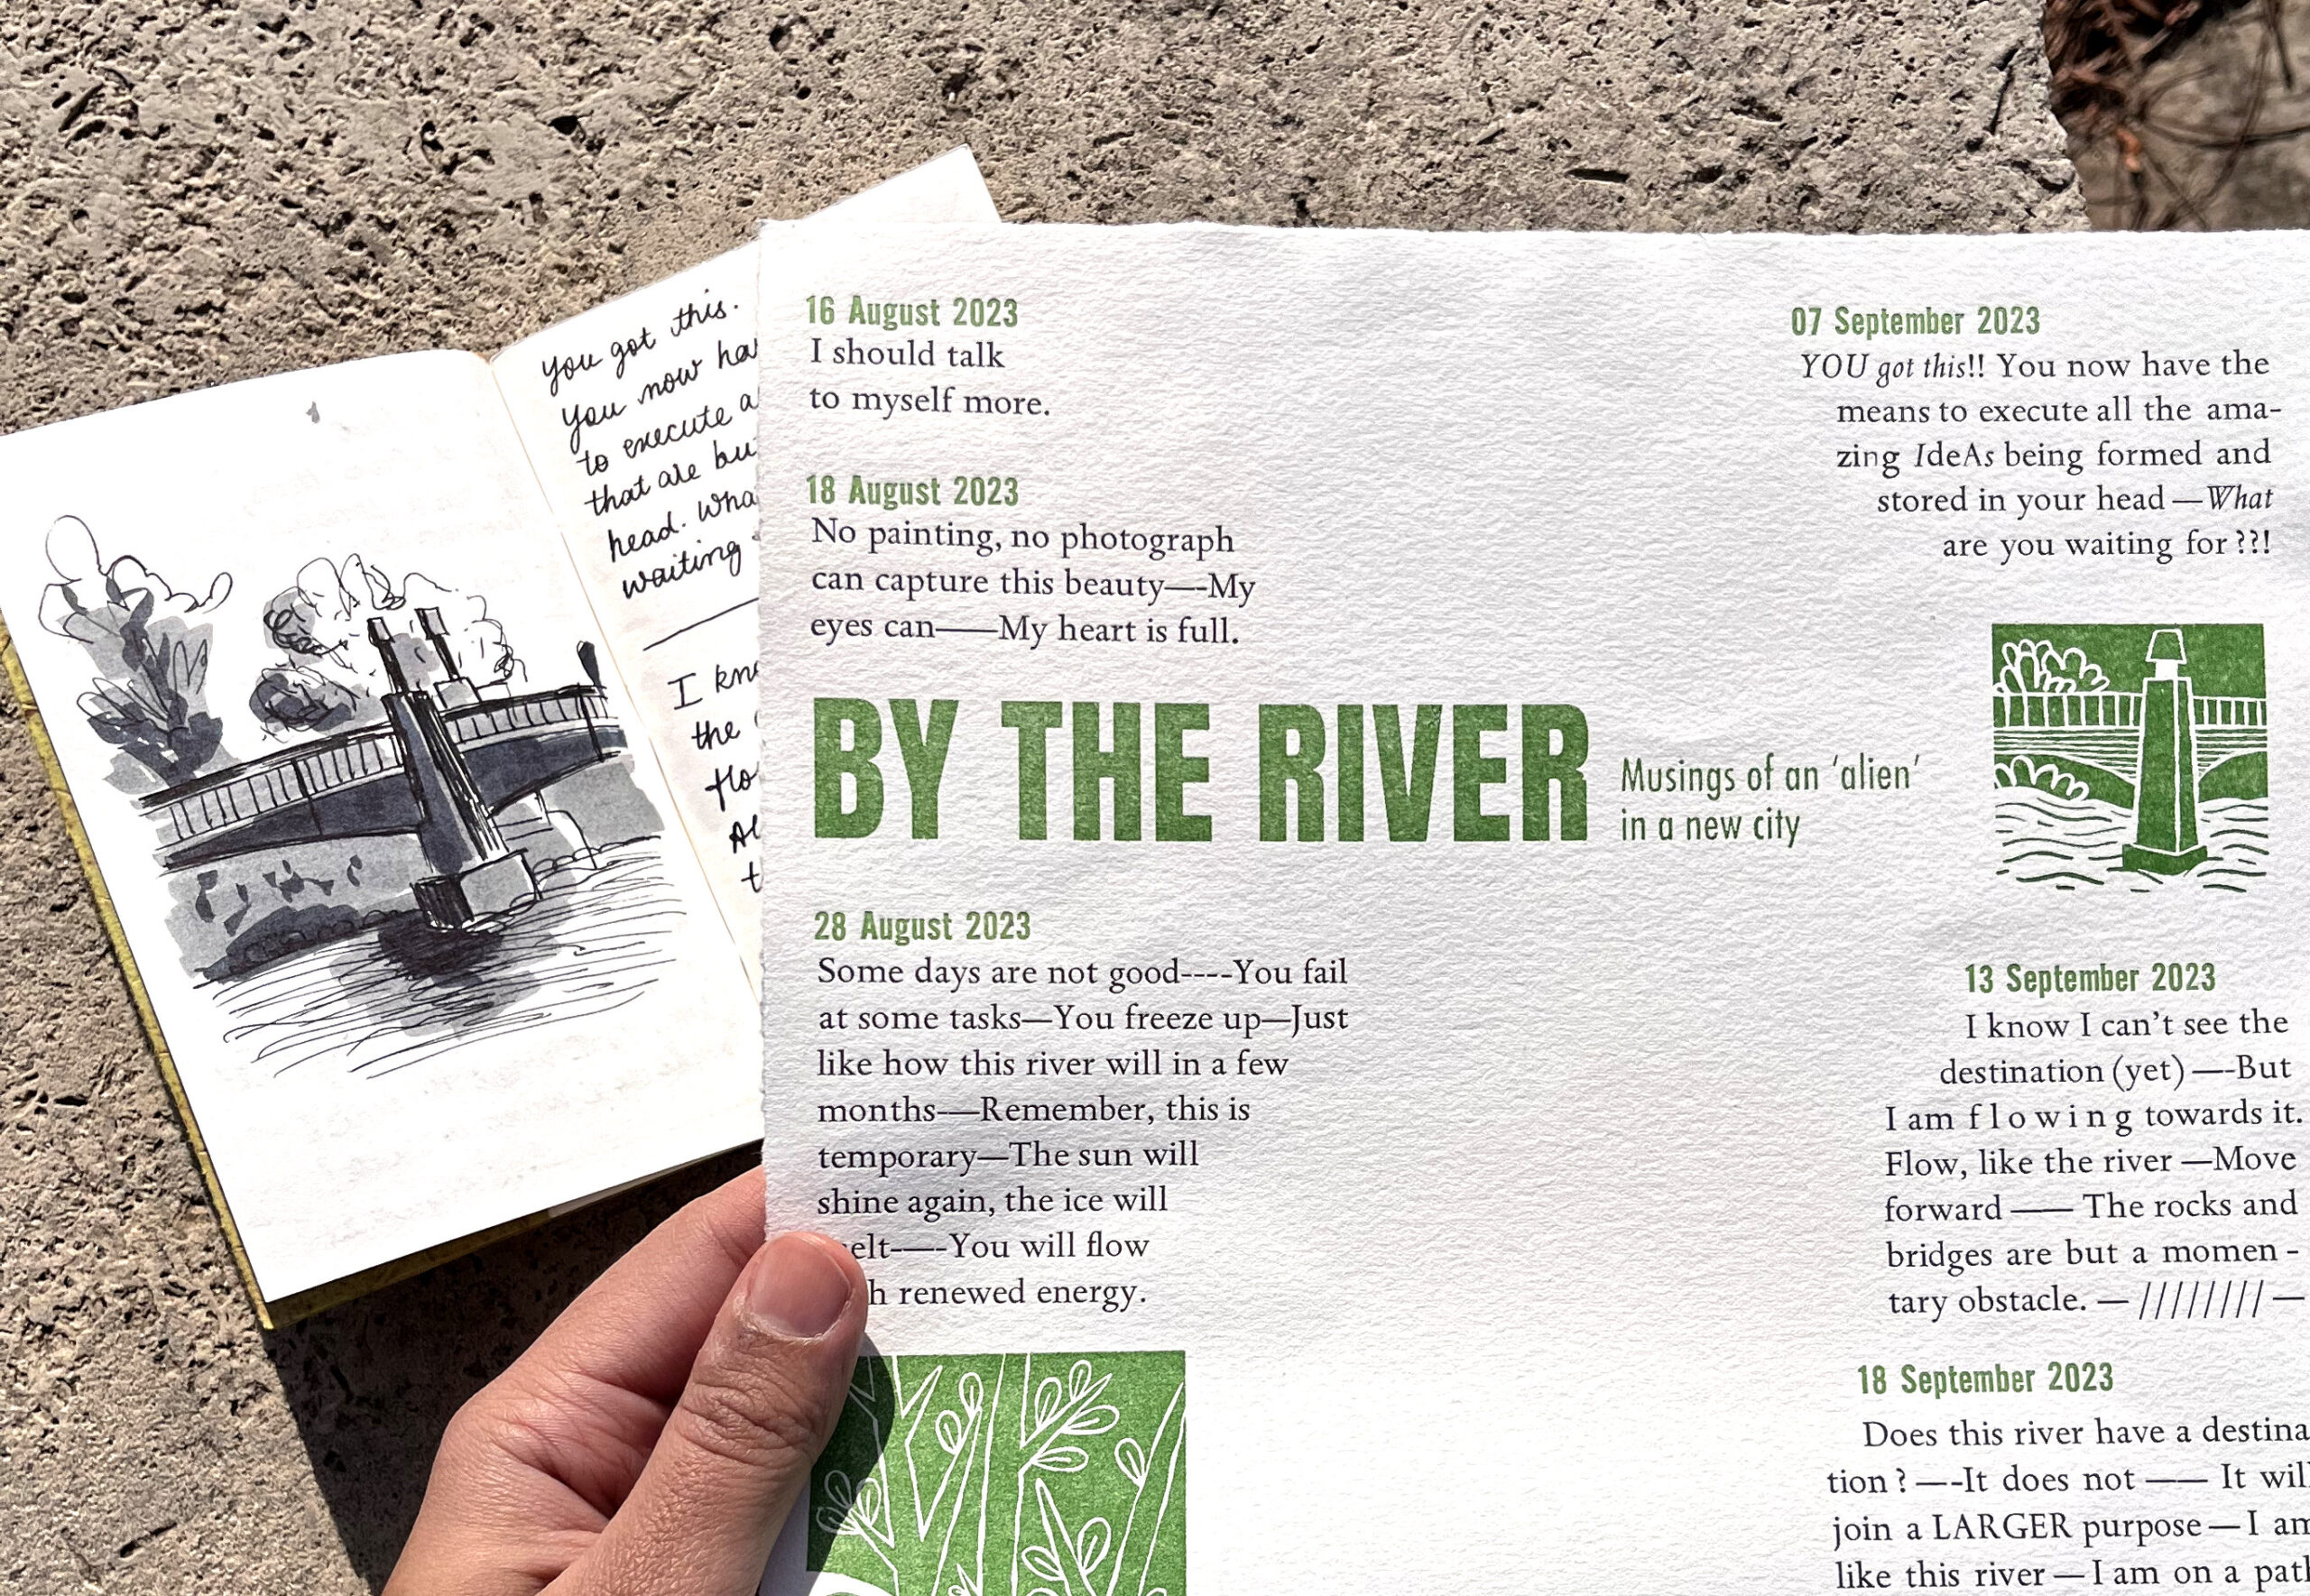 you got this.
you now
to execute
that are
head.
waiting
I
the
16 August 2023
I should talk
to myself more.
18 August 2023
No painting, no photograph
can capture this beauty—-My
eyes can——My heart is full.
BY THE RIVER
Musings of an ‘alien’
in a new city
28 August 2023
Some days are not good----You fail
at some tasks—You freeze up—Just
like how this river will in a few
months-—Remember, this is
temporary—The sun will
shine again, the ice will
You will flow
renewed energy.
07 September 2023
YOU got this!! You now have the
means to execute all the ama-
zing IdeAs being formed and
stored in your head —What
are you waiting for ??!
13 September 2023
I know I can’t see the
destination (yet) —-But
I am f l o w i n g towards it.
Flow, like the river —Move
forward —— The rocks and
bridges are but a momen -
tary obstacle. — ///////// —
18 September 2023
Does this river have a destina
tion ? —-It does not —— It will
join a LARGER purpose — I am
like this river — I am on a path